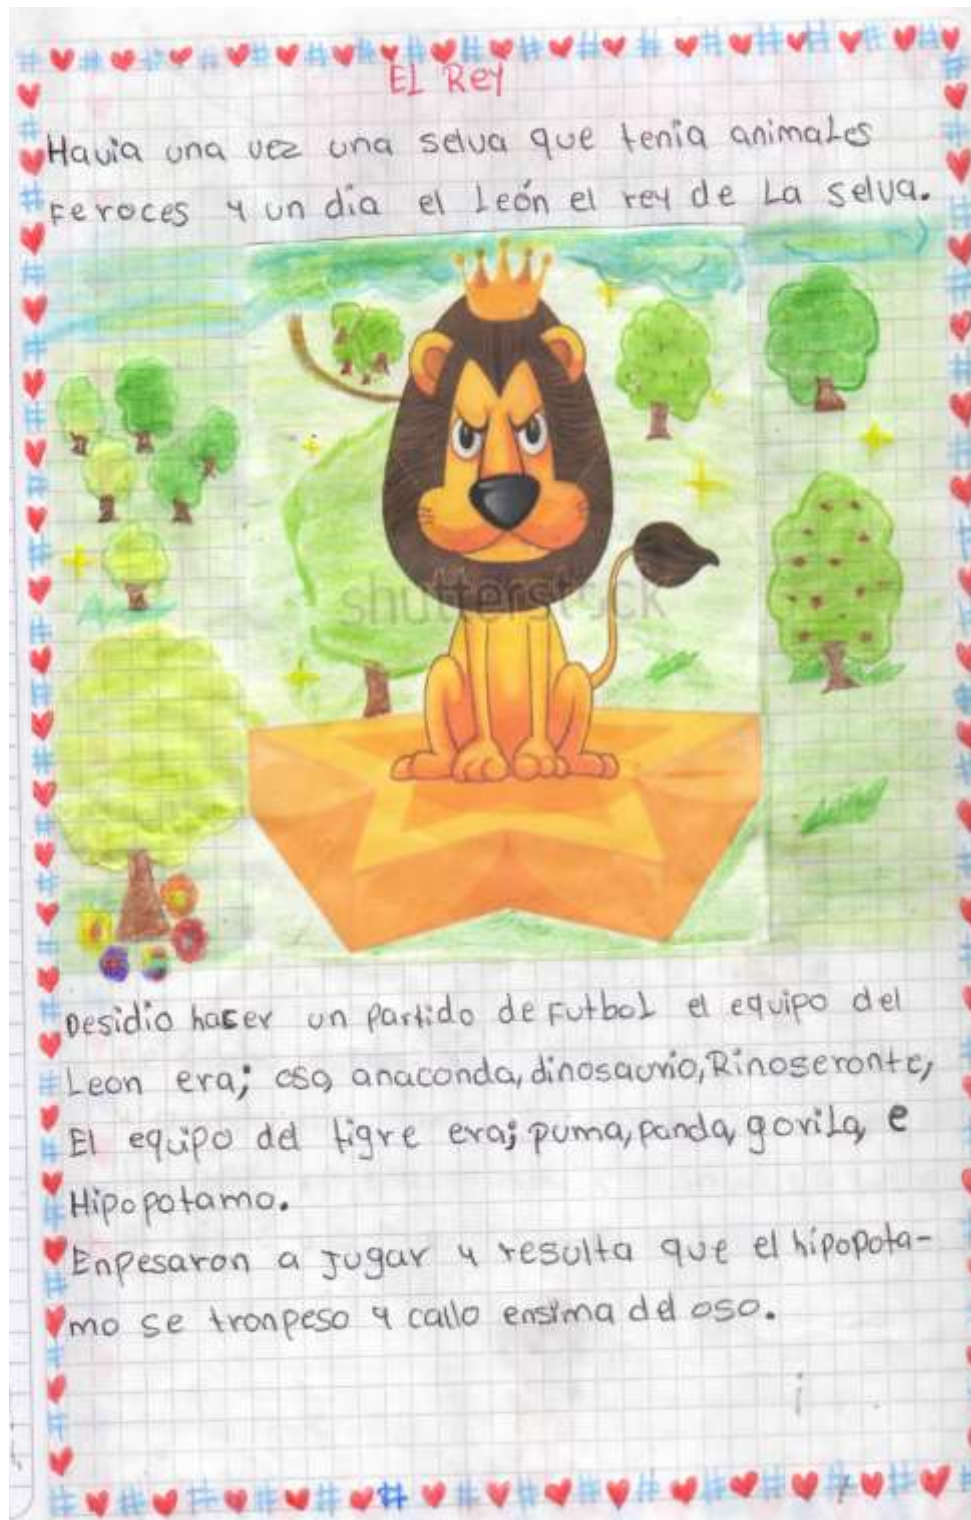 EL Rey
Havia una vez una selva que tenia animales
Feroces y un dia el León el rey de La selva.
shutterstock
Desidio hacer un partido de Futbol el equipo del
Leon era; oso, anaconda, dinosaurio, Rinoseronte,
El equipo del tigre era; puma, panda, gorila, e
Hipopotamo.
Enpesaron a Jugar y resulta que el hipopota-
mo se tronpeso y callo ensima del oso.